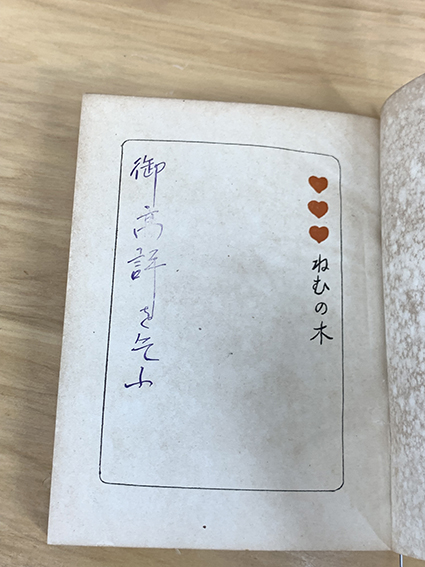 ねむの木
御高評を乞ふ